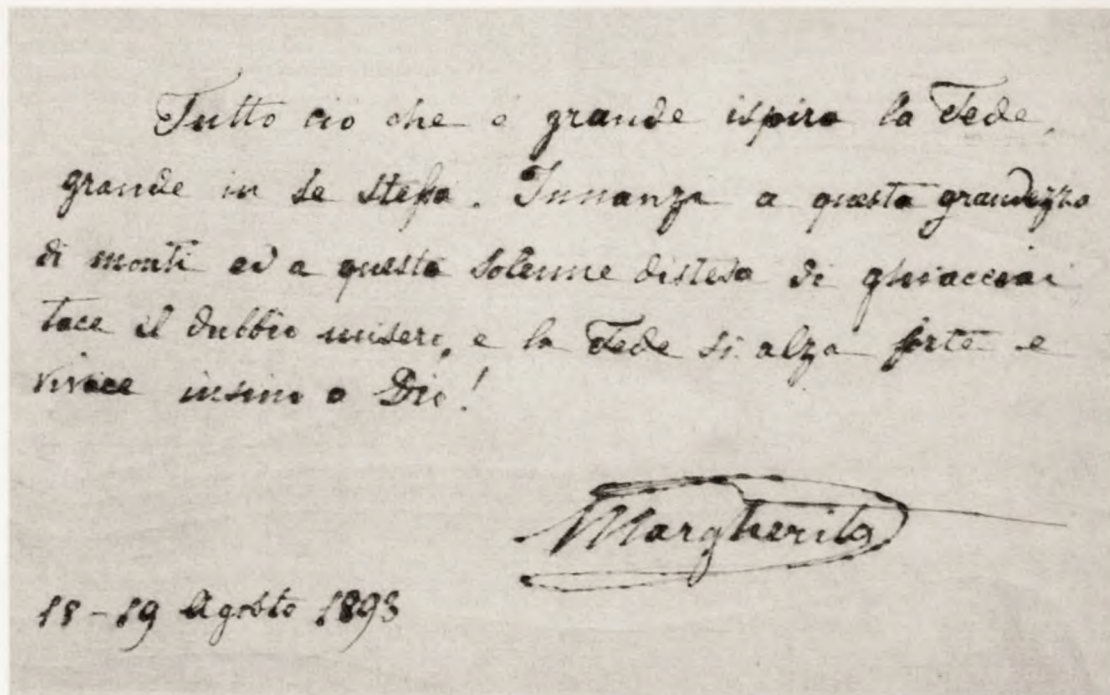 Tutto cio che e grande ispira la Fede,
grande in se stessa. Innanzi a questa grandezza
di monti ed a questa solenne distesa di ghiacciai
tace il dubbio misero, e la Fede si alza forte e
vivace insino a Dio!
Margherita
18-19 Agosto 1893